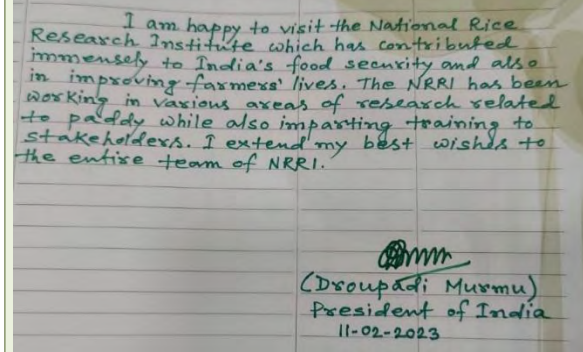 I am happy to visit the National Rice
Research Institute which has contributed
immensely to India's food security and also
in improving farmers' lives. The NRRI has been
working in various areas of research related
to paddy while also imparting training to
stakeholders. I extend my best wishes to
the entire team of NRRI.
(Droupadi Murmu)
President of India
11-02-2023